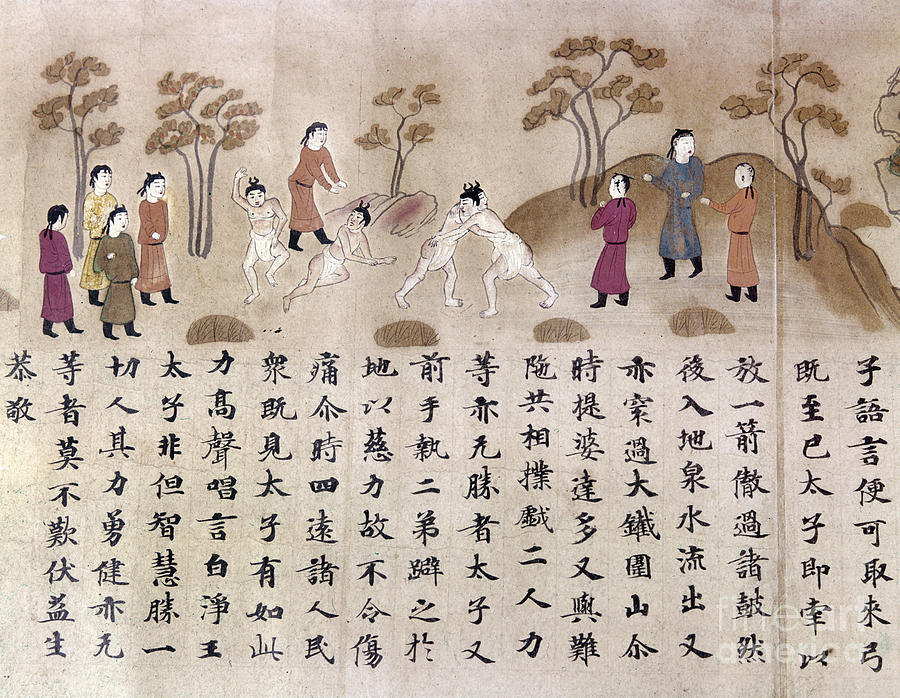 子語言便可取來弓
既至已太子即牽以
放一箭徹過諸皷然
後入地泉水流出又
亦穿過大鐵圍山尒
時提婆達多又與難
陁共相撲戯二人力
等亦无勝者太子又
前手執二弟躃之於
地以慈力故不令傷
痛尒時四遠諸人民
衆既見太子有如此
力高聲唱言白淨王
太子非但智慧勝一
切人其力勇健亦无
等者莫不歎伏益生
恭敬
fine art
america